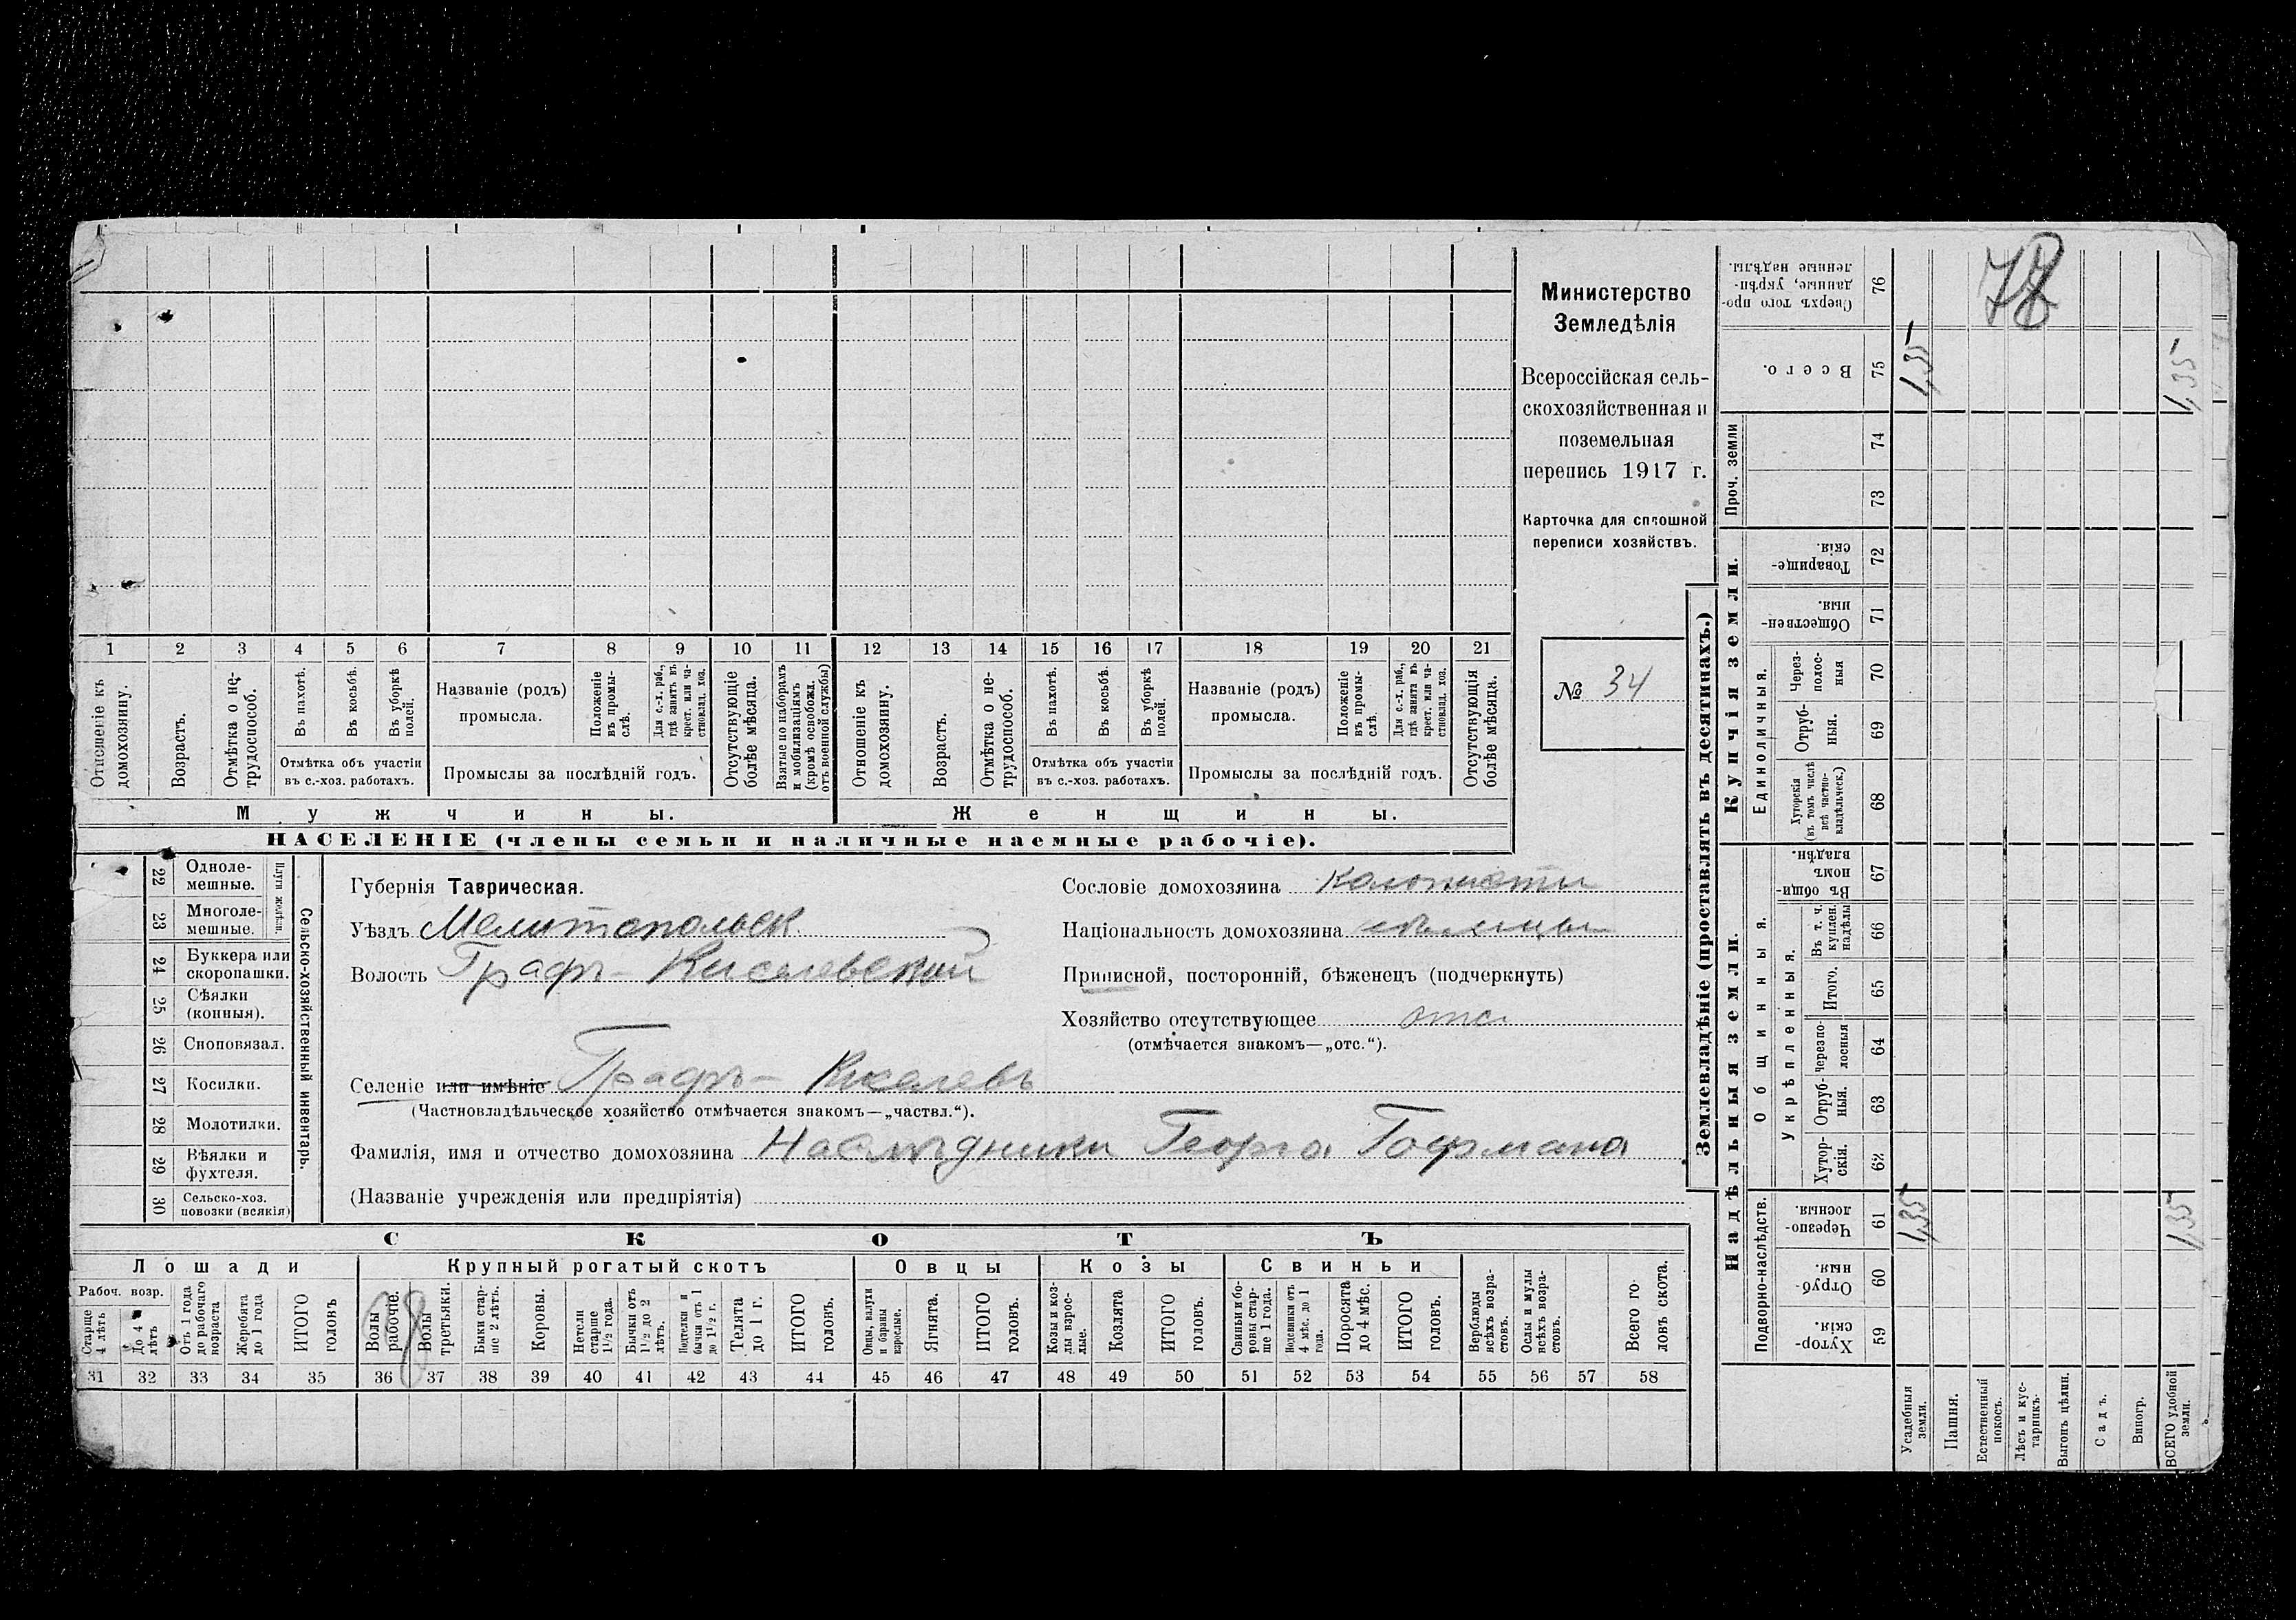 Министерство
Земледѣлія
Всероссійская сель-
скохозяйственная и
поземельная
перепись 1917 г.
Карточка для сплошной
переписи хозяйствъ.
№ 34
78
1 2 3 4 5 6 7 8 9 10 11 12 13 14 15 16 17 18 19 20 21
Отношеніе къ домохозяину.
Возрастъ.
Отмѣтка о не-трудоспособ.
Въ пахотѣ.
Въ косьбѣ.
Въ уборкѣ полей.
Отмѣтка объ участіи
въ с.-хоз. работахъ.
Названіе (родъ)
промысла.
Положеніе въ промы-слѣ.
Для с.-х. раб., гдѣ занятъ въ крест. или ча-стновлад. хоз.
Промыслы за послѣдній годъ.
Отсутствующіе болѣе мѣсяца.
Взятые по наборамъ и мобилизаціямъ (кромѣ освобожд. отъ военной службы)
Отношеніе къ домохозяину.
Возрастъ.
Отмѣтка о не-трудоспособ.
Въ пахотѣ.
Въ косьбѣ.
Въ уборкѣ полей.
Отмѣтка объ участіи
въ с.-хоз. работахъ.
Названіе (родъ)
промысла.
Положеніе въ промы-слѣ.
Для с.-х. раб., гдѣ занята въ крест. или ча-стновлад. хоз.
Промыслы за послѣдній годъ.
Отсутствующія болѣе мѣсяца.
Мужчины.
Женщины.
НАСЕЛЕНІЕ (члены семьи и наличные наемные рабочіе).
22 Одноле-мешные.
23 Многоле-мешные.
Плуги желѣзн.
24 Буккера или скоропашки.
25 Сѣялки (конныя).
26 Сноповязал.
27 Косилки.
28 Молотилки.
29 Вѣялки и фухтеля.
30 Сельско-хоз. повозки (всякія)
Сельско-хозяйственный инвентарь.
Губернія Таврическая.
Уѣздъ Мелитопольск.
Волость Графъ-Киселевской
Селеніе или имѣніе Графъ-Киселевъ
(Частновладѣльческое хозяйство отмѣчается знакомъ—„частвл.“).
Фамилія, имя и отчество домохозяина Наслѣдники Георга Гофмана
(Названіе учрежденія или предпріятія)
Сословіе домохозяина колонисты
Національность домохозяина нѣмцы
Приписной, посторонній, бѣженецъ (подчеркнуть)
Хозяйство отсутствующее отс.
(отмѣчается знакомъ—„отс.“).
СКОТЪ
Лошади
Крупный рогатый скотъ
Овцы
Козы
Свиньи
Рабоч. возр.
Старше 4 лѣтъ
До 4 лѣтъ
Отъ 1 года до рабочаго возраста
Жеребята до 1 года
ИТОГО головъ
Волы рабочіе.
Волы третьяки.
Быки стар-ше 2 лѣтъ.
Коровы.
Нетели старше 1½ года.
Бычки отъ 1½ до 2 лѣтъ.
Подтелки и бычки отъ 1 до 1½ г.
Телята до 1 г.
ИТОГО головъ.
Овцы, валухи и бараны взрослые.
Ягнята.
ИТОГО головъ.
Козы и коз-лы взрос-лые.
Козлята
ИТОГО головъ.
Свиньи и бо-ровы стар-ше 1 года.
Подсвинки отъ 4 мѣс. до 1 года.
Поросята до 4 мѣс.
ИТОГО головъ.
Верблюды всѣхъ возра-стовъ.
Ослы и мулы всѣхъ возра-стовъ.
Всего го-ловъ скота.
31 32 33 34 35 36 37 38 39 40 41 42 43 44 45 46 47 48 49 50 51 52 53 54 55 56 57 58
Землевладѣніе (проставлять въ десятинахъ.)
Купчія земли.
Надѣльныя земли.
Сверхъ того про-данные, укрѣп-ленные надѣлы. 76
Всего. 75
1,35
1,35
Проч. земли
74
73
Товарище-скія. 72
Обществен-ныя. 71
Единоличныя.
Через-полос-ныя 70
Отруб-ныя. 69
Хуторскія (въ томъ числѣ всѣ частно-владѣльческ.) 68
Общинныя.
Въ общин-номъ владѣн. 67
Укрѣпленныя.
Въ т. ч. куплен. надѣлы 66
Итого. 65
Черезпо-лосныя 64
Отруб-ныя. 63
Хутор-скія. 62
Подворно-наслѣдств.
Черезпо-лосныя. 61
1,35
1,35
Отруб-ныя. 60
Хутор-скія. 59
Усадебныя земли.
Пашня.
Естественный покосъ.
Лѣсъ и кус-тарникъ.
Выгонъ цѣлин.
Садъ.
Виногр.
ВСЕГО удобной земли.